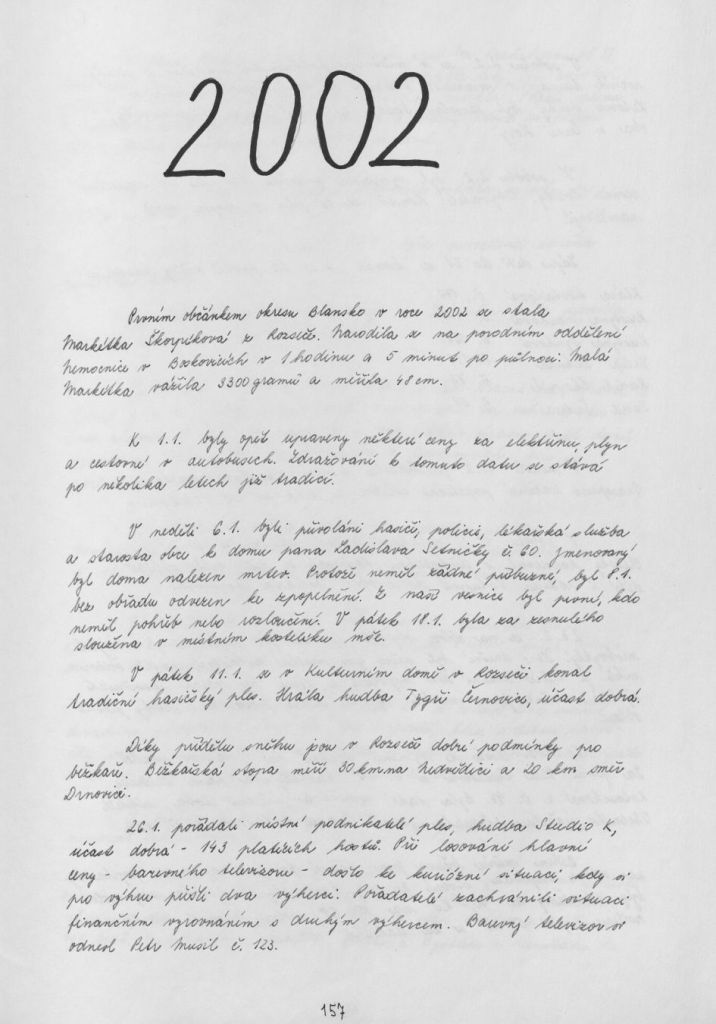 2002
Prvním občánkem okresu Blansko v roce 2002 se stala
Markétka Škorpíková z Rozseče. Narodila se na porodním oddělení
Nemocnice v Boskovicích v 1 hodinu a 5 minut po půlnoci. Malá
Markétka vážila 3300 gramů a měřila 48 cm.
K 1.1. byly opět upraveny některé ceny za elektřinu, plyn
a cestovné v autobusech. Zdražování k tomuto datu se stává
po několika letech již tradicí.
V neděli 6.1. byli přivoláni hasiči, policie, lékařská služba
a starosta obce k domu pana Ladislava Setničky č. 60. Jmenovaný
byl doma nalezen mrtev. Protože neměl žádné příbuzné, byl 8.1.
bez obřadu odvezen ke zpopelnění. Z naší vesnice byl první, kdo
neměl pohřeb nebo rozloučení. V pátek 18.1. byla za zesnulého
sloužena v místním kostelíku mše.
V pátek 11.1. se v Kulturním domě v Rozseči konal
tradiční hasičský ples. Hrála hudba Tygři Černovice, účast dobrá.
Díky přídělu sněhu jsou v Rozseči dobré podmínky pro
běžkaře. Běžkařská stopa měří 30 km na Nedvědici a 20 km směr
Drnovice.
26.1. pořádali místní podnikatelé ples, hudba Studio K,
účast dobrá - 143 platících hostů. Při losování hlavní
ceny - barevného televizoru - došlo ke kuriózné situaci, kdy si
pro výhru přišli dva výherci. Pořadatelé zachránili situaci
finančním vyrovnáním s druhým výhercem. Barevný televizor si
odnesl Petr Musil č. 123.
157